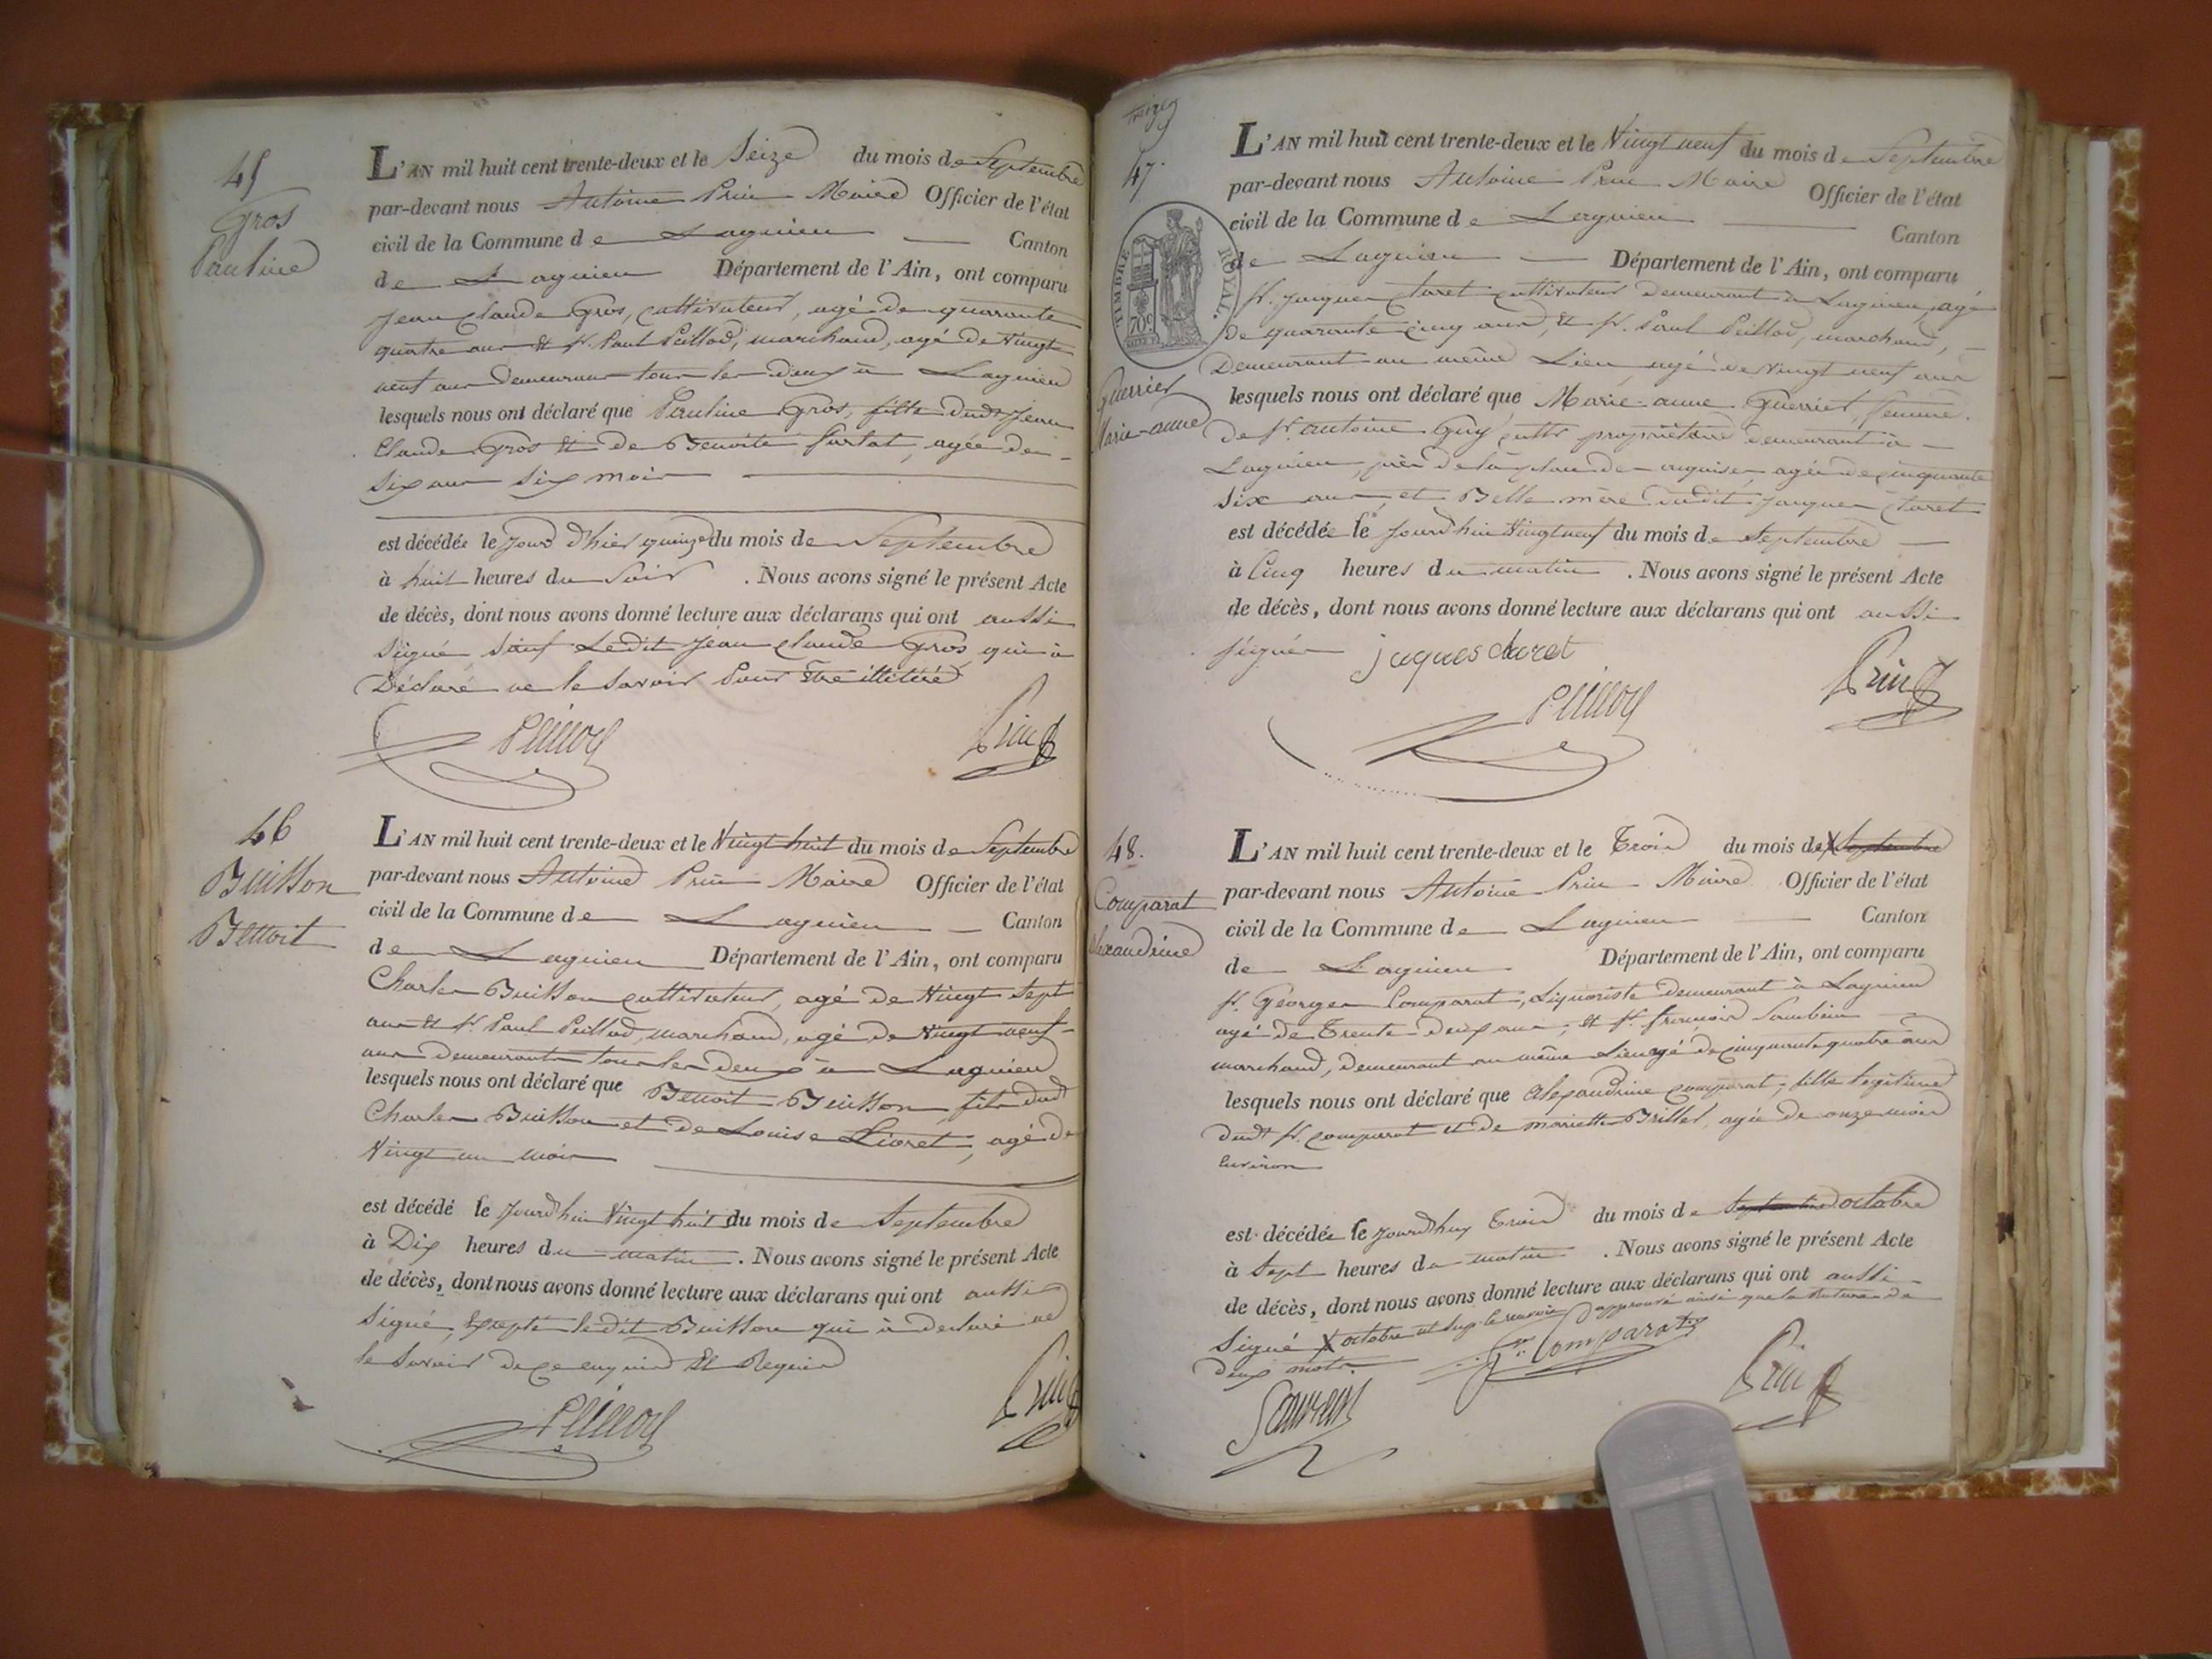 45
Gros
Pauline
L'AN mil huit cent trente-deux et le Seize du mois de Septembre
par-devant nous Antoine Prin Maire Officier de l'état
civil de la Commune de Lagnieu Canton
de Lagnieu Département de l'Ain, ont comparu
Jean Claude Gros, cultivateur, agé de quarante
quatre ans et Sr. Paul Peillod, marchand, agé de Vingt
neuf ans demeurans tous les deux à Lagnieu
lesquels nous ont déclaré que Pauline Gros, fille dudt Jean
Claude Gros et de Benoite agée de
six ans six mois
est décédée le jour d'hier quinze du mois de Septembre
à huit heures du Soir . Nous avons signé le présent Acte
de décès, dont nous avons donné lecture aux déclarans qui ont aussi
Signé Sauf Ledit Jean Claude Gros qui a
Déclaré ne le Savoir Pour Être illitéré
Peillod Prin
46
Buisson
Benoit
L'AN mil huit cent trente-deux et le Vingt huit du mois de Septembre
par-devant nous Antoine Prin Maire Officier de l'état
civil de la Commune de Lagnieu Canton
de Lagnieu Département de l'Ain, ont comparu
Charles Buisson cultivateur, agé de Vingt Sept
ans et Sr. Paul Peillod, marchand, agé de Vingt neuf
ans demeurants tous les deux à Lagnieu
lesquels nous ont déclaré que Benoit Buisson fils dudt
Charles Buisson et de Louise Livret, agé de
Vingt un mois
est décédé le jourd'hui Vingt huit du mois de Septembre
à Dix heures du matin . Nous avons signé le présent Acte
de décès, dont nous avons donné lecture aux déclarans qui ont aussi
Signé, Excepté ledit Buisson qui a declaré ne
le Savoir de ce enquis et Requis
Peillod Prin
47.
TIMBRE ROYAL.
70c
Guerrier
Marie-anne
L'AN mil huit cent trente-deux et le Vingt neuf du mois de Septembre
par-devant nous Antoine Prin Maire Officier de l'état
civil de la Commune de Lagnieu Canton
de Lagnieu Département de l'Ain, ont comparu
Sr. Jacques Claret cultivateur demeurant à Lagnieu, agé
de quarante cinq ans, et Sr. Paul Peillod, marchand,
Demeurant au même Lieu, agé de vingt neuf ans
lesquels nous ont déclaré que Marie-anne Guerrier, femme
de Sr. antoine Guy propriétaire demeurant à
Lagnieu, agée de cinquante
Six ans, et Belle mère dudit Jacques Claret
est décédée le jourd'hui Vingt neuf du mois de Septembre
à Cinq heures du matin . Nous avons signé le présent Acte
de décès, dont nous avons donné lecture aux déclarans qui ont aussi
signés jaques claret
Peillod Prin
48.
Comparat
Alexandrine
L'AN mil huit cent trente-deux et le Trois du mois de X Septembre
par-devant nous Antoine Prin Maire Officier de l'état
civil de la Commune de Lagnieu Canton
de Lagnieu Département de l'Ain, ont comparu
Sr. Georges Comparat, Liquoriste demeurant à Lagnieu
agé de Trente deux ans, et Sr. françois
marchand, demeurant au même Lieu agé de cinquante quatre ans
lesquels nous ont déclaré que Alexandrine Comparat, fille legitime
dudt Sr. Comparat et de mariette Brillet, agée de onze mois
Environ
est décédée le jourd'huy Trois du mois de Septembre octobre
à Sept heures du matin . Nous avons signé le présent Acte
de décès, dont nous avons donné lecture aux déclarans qui ont aussi
Signé X octobre le renvoi approuvé ainsi que la Rature de
deux mots.
Comparat Prin